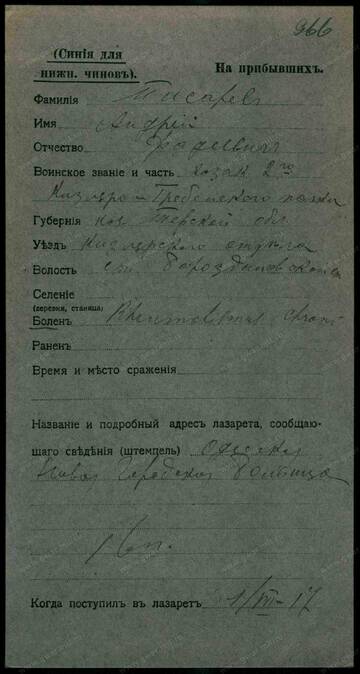 966
(Синія для
нижн. чиновъ). На прибывшихъ.
Фамилія Писарев
Имя Андрей
Отчество Фадеевич
Воинское званіе и часть казак 2го
Кизляро-Гребенского полка
Губернія Терской обл
Уѣздъ Кизлярского отдела
Волость ст. Бороздиновской
Селеніе
(деревня, станица)
Боленъ Rheumatismus chroni
Раненъ
Время и мѣсто сраженія
Названіе и подробный адресъ лазарета, сообщаю-
щаго свѣдѣнія (штемпель) Одесская
Новая Городская больница
Когда поступилъ въ лазаретъ 1/VIII-17